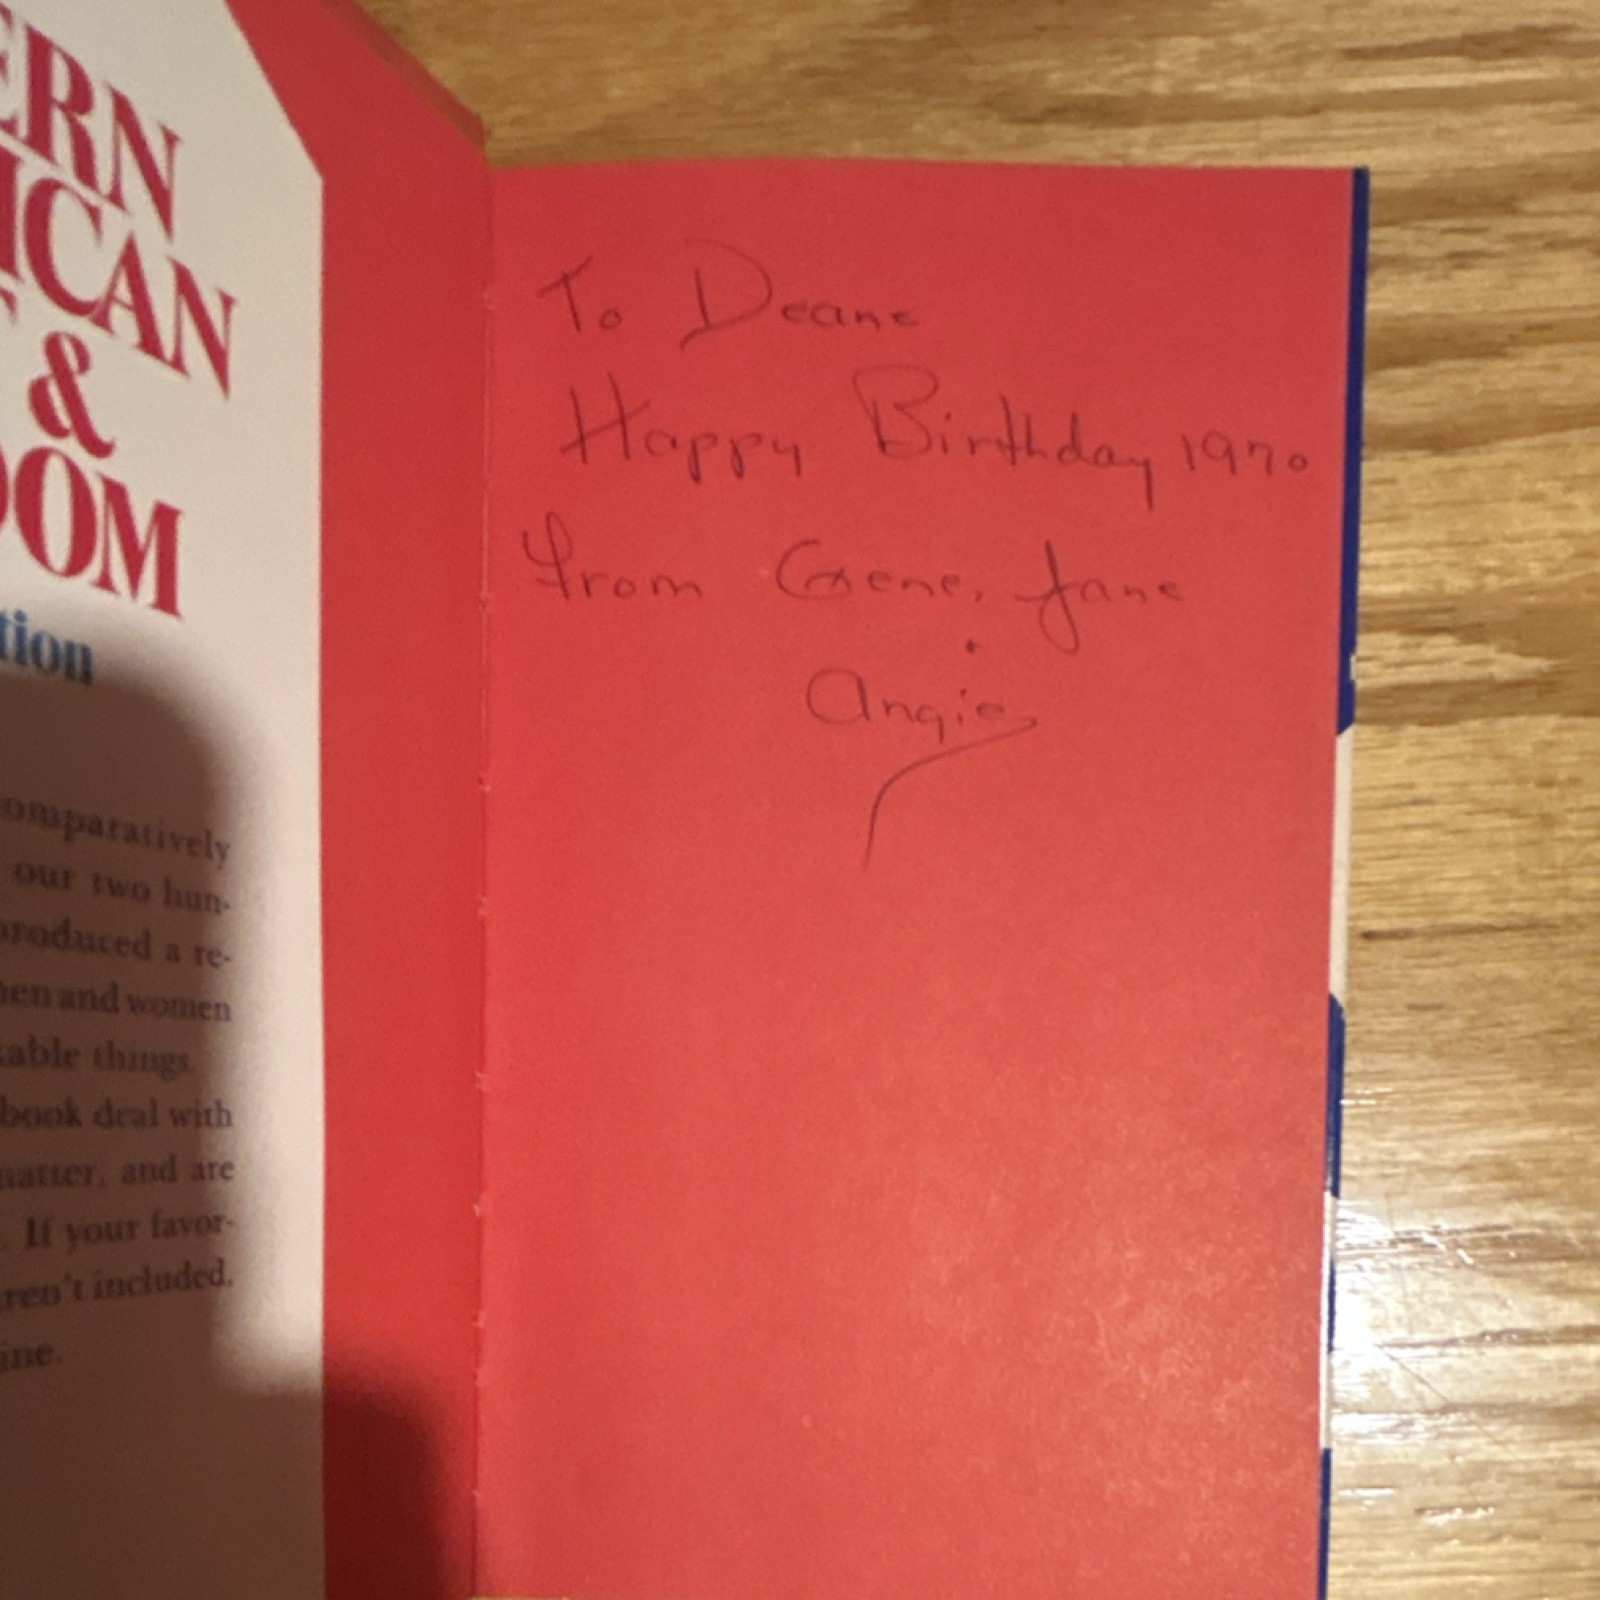 ERN
ICAN
&
DOM
tion
comparatively
our two hun-
produced a re-
men and women
able things.
book deal with
matter, and are
. If your favor-
aren't included,
ine.
To Deane
Happy Birthday 1970
From Gene, Jane
Angie